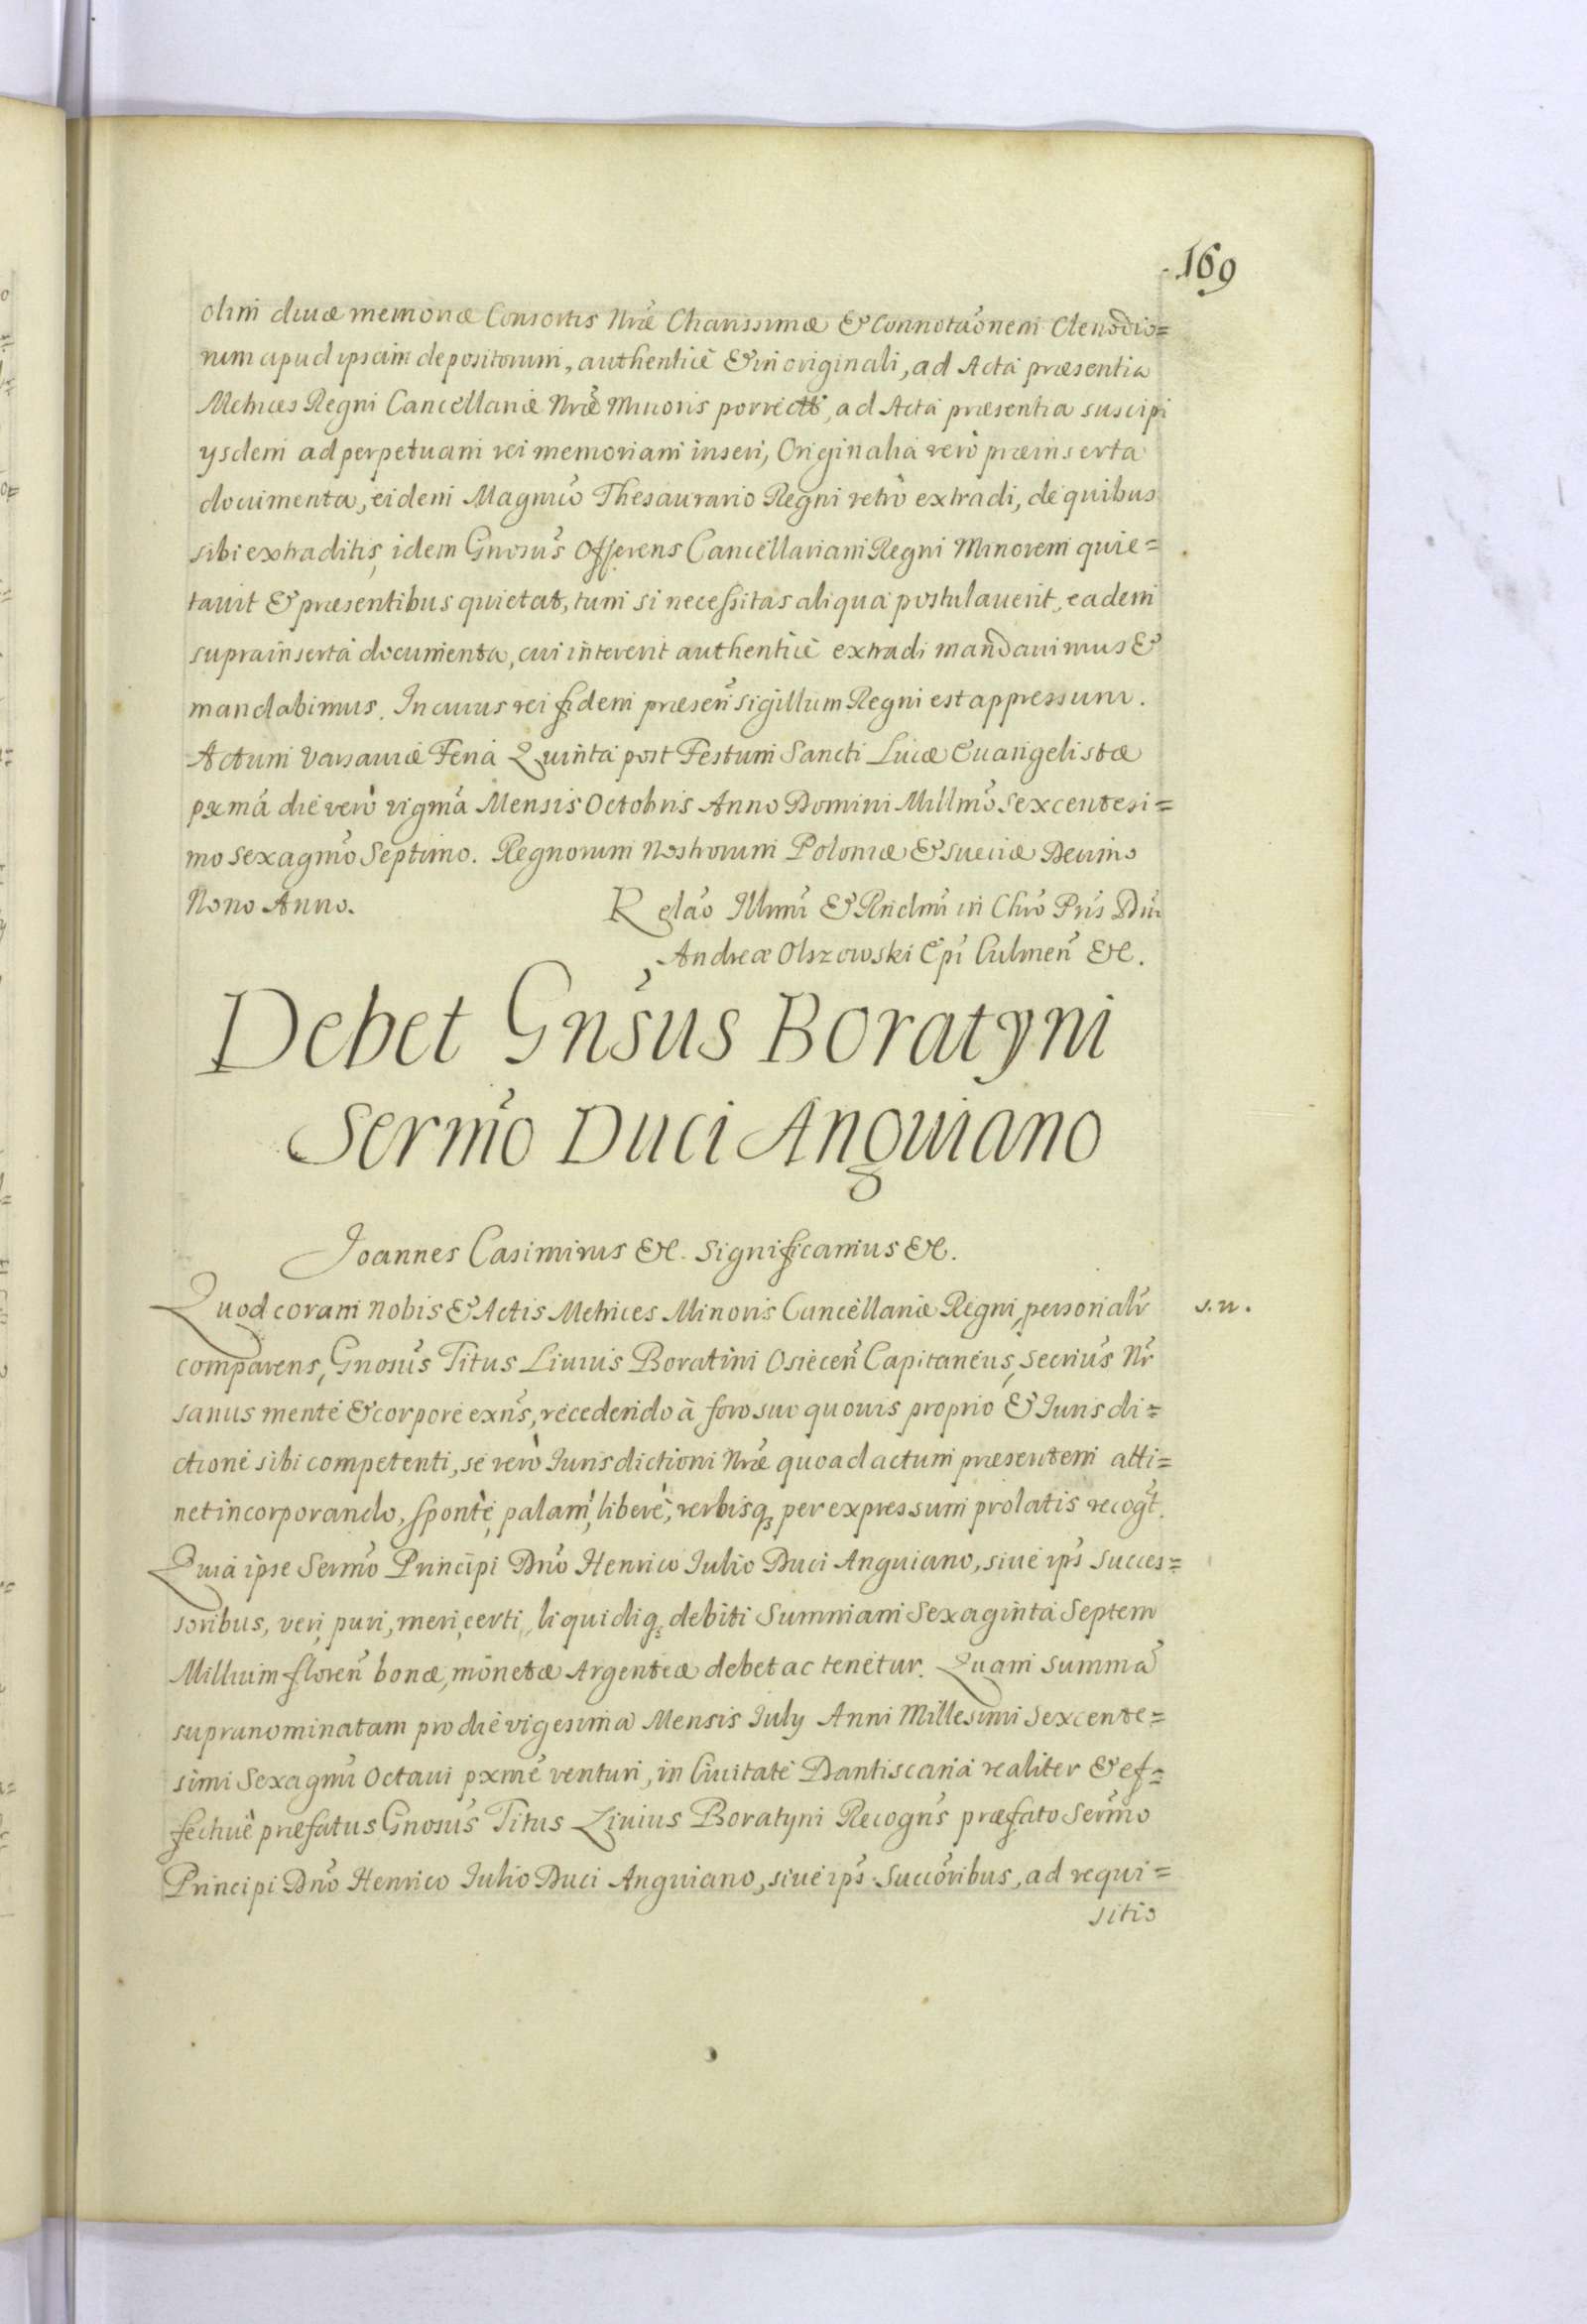 169
olim diuæ memoriæ Consortis Nræ Charissimæ & Connotaõnem Clenodio=
rum apud ipsam depositorum, authenticè & in originali, ad Acta præsentia
Metrices Regni Cancellariæ Nræ Minoris porrect, ad Acta præsentia suscipi
ysdem ad perpetuam rei memoriam inseri, Originalia verò præinserta
documenta, eidem Magnico Thesaurario Regni retrò extradi, de quibus
sibi extraditis, idem Gnosus Offerens Cancellariam Regni Minorem quie=
tauit & præsentibus quietat, tum si necessitas aliqua postulauerit, eadem
suprainserta documenta, cui intererit authenticè extradi mandauimus &
mandabimus. In cuius rei fidem præseñ sigillum Regni est appressum.
Actum Varsauiæ Feria Quinta post Festum Sancti Lucæ Euangelistæ
pxmâ die verò vigmâ Mensis Octobris Anno Domini Millmo Sexcentesi=
mo Sexagmo Septimo. Regnorum Nostrorum Poloniæ & Sueciæ Decimo
Nono Anno.
Relão Illmi & Rndmi in Chro Pris Dni
Andreæ Olszowski Epi Culmeñ &c.
Debet Gnsus Boratyni
Sermo Duci Anguiano
Joannes Casimirus &c. Significamus &c.
Quod coram Nobis & Actis Metrices Minoris Cancellariæ Regni, personalr s.n.
comparens, Gnosus Titus Liuius Boratini Osieceñ Capitaneus, Secrius Nr
sanus mente & corpore exns, recedendo à foro suo quouis proprio & Iurisdi=
ctione sibi competenti, se verò Iurisdictioni Nræ quoad actum præsentem atti=
net incorporando, sponte, palam, liberè, verbisq, per expressum prolatis recogt.
Quia ipse Sermo Principi Dno Henrico Iulio Duci Anguiano, siue ips succes=
soribus, veri, puri, meri, certi, liquidiq, debiti Summam Sexaginta Septem
Millium floreñ bonæ, monetæ Argenteæ debet ac tenetur. Quam summã
supranominatam pro die vigesima Mensis July Anni Millesimi Sexcente=
simi Sexagmi Octaui pxmè venturi, in Ciuitate Dantiscana realiter & ef=
fectiuè præfatus Gnosus Titus Liuius Boratyni Recogns præfato Sermo
Principi Dno Henrico Iulio Duci Anguiano, siue ips Succoribus, ad requi=
sitio